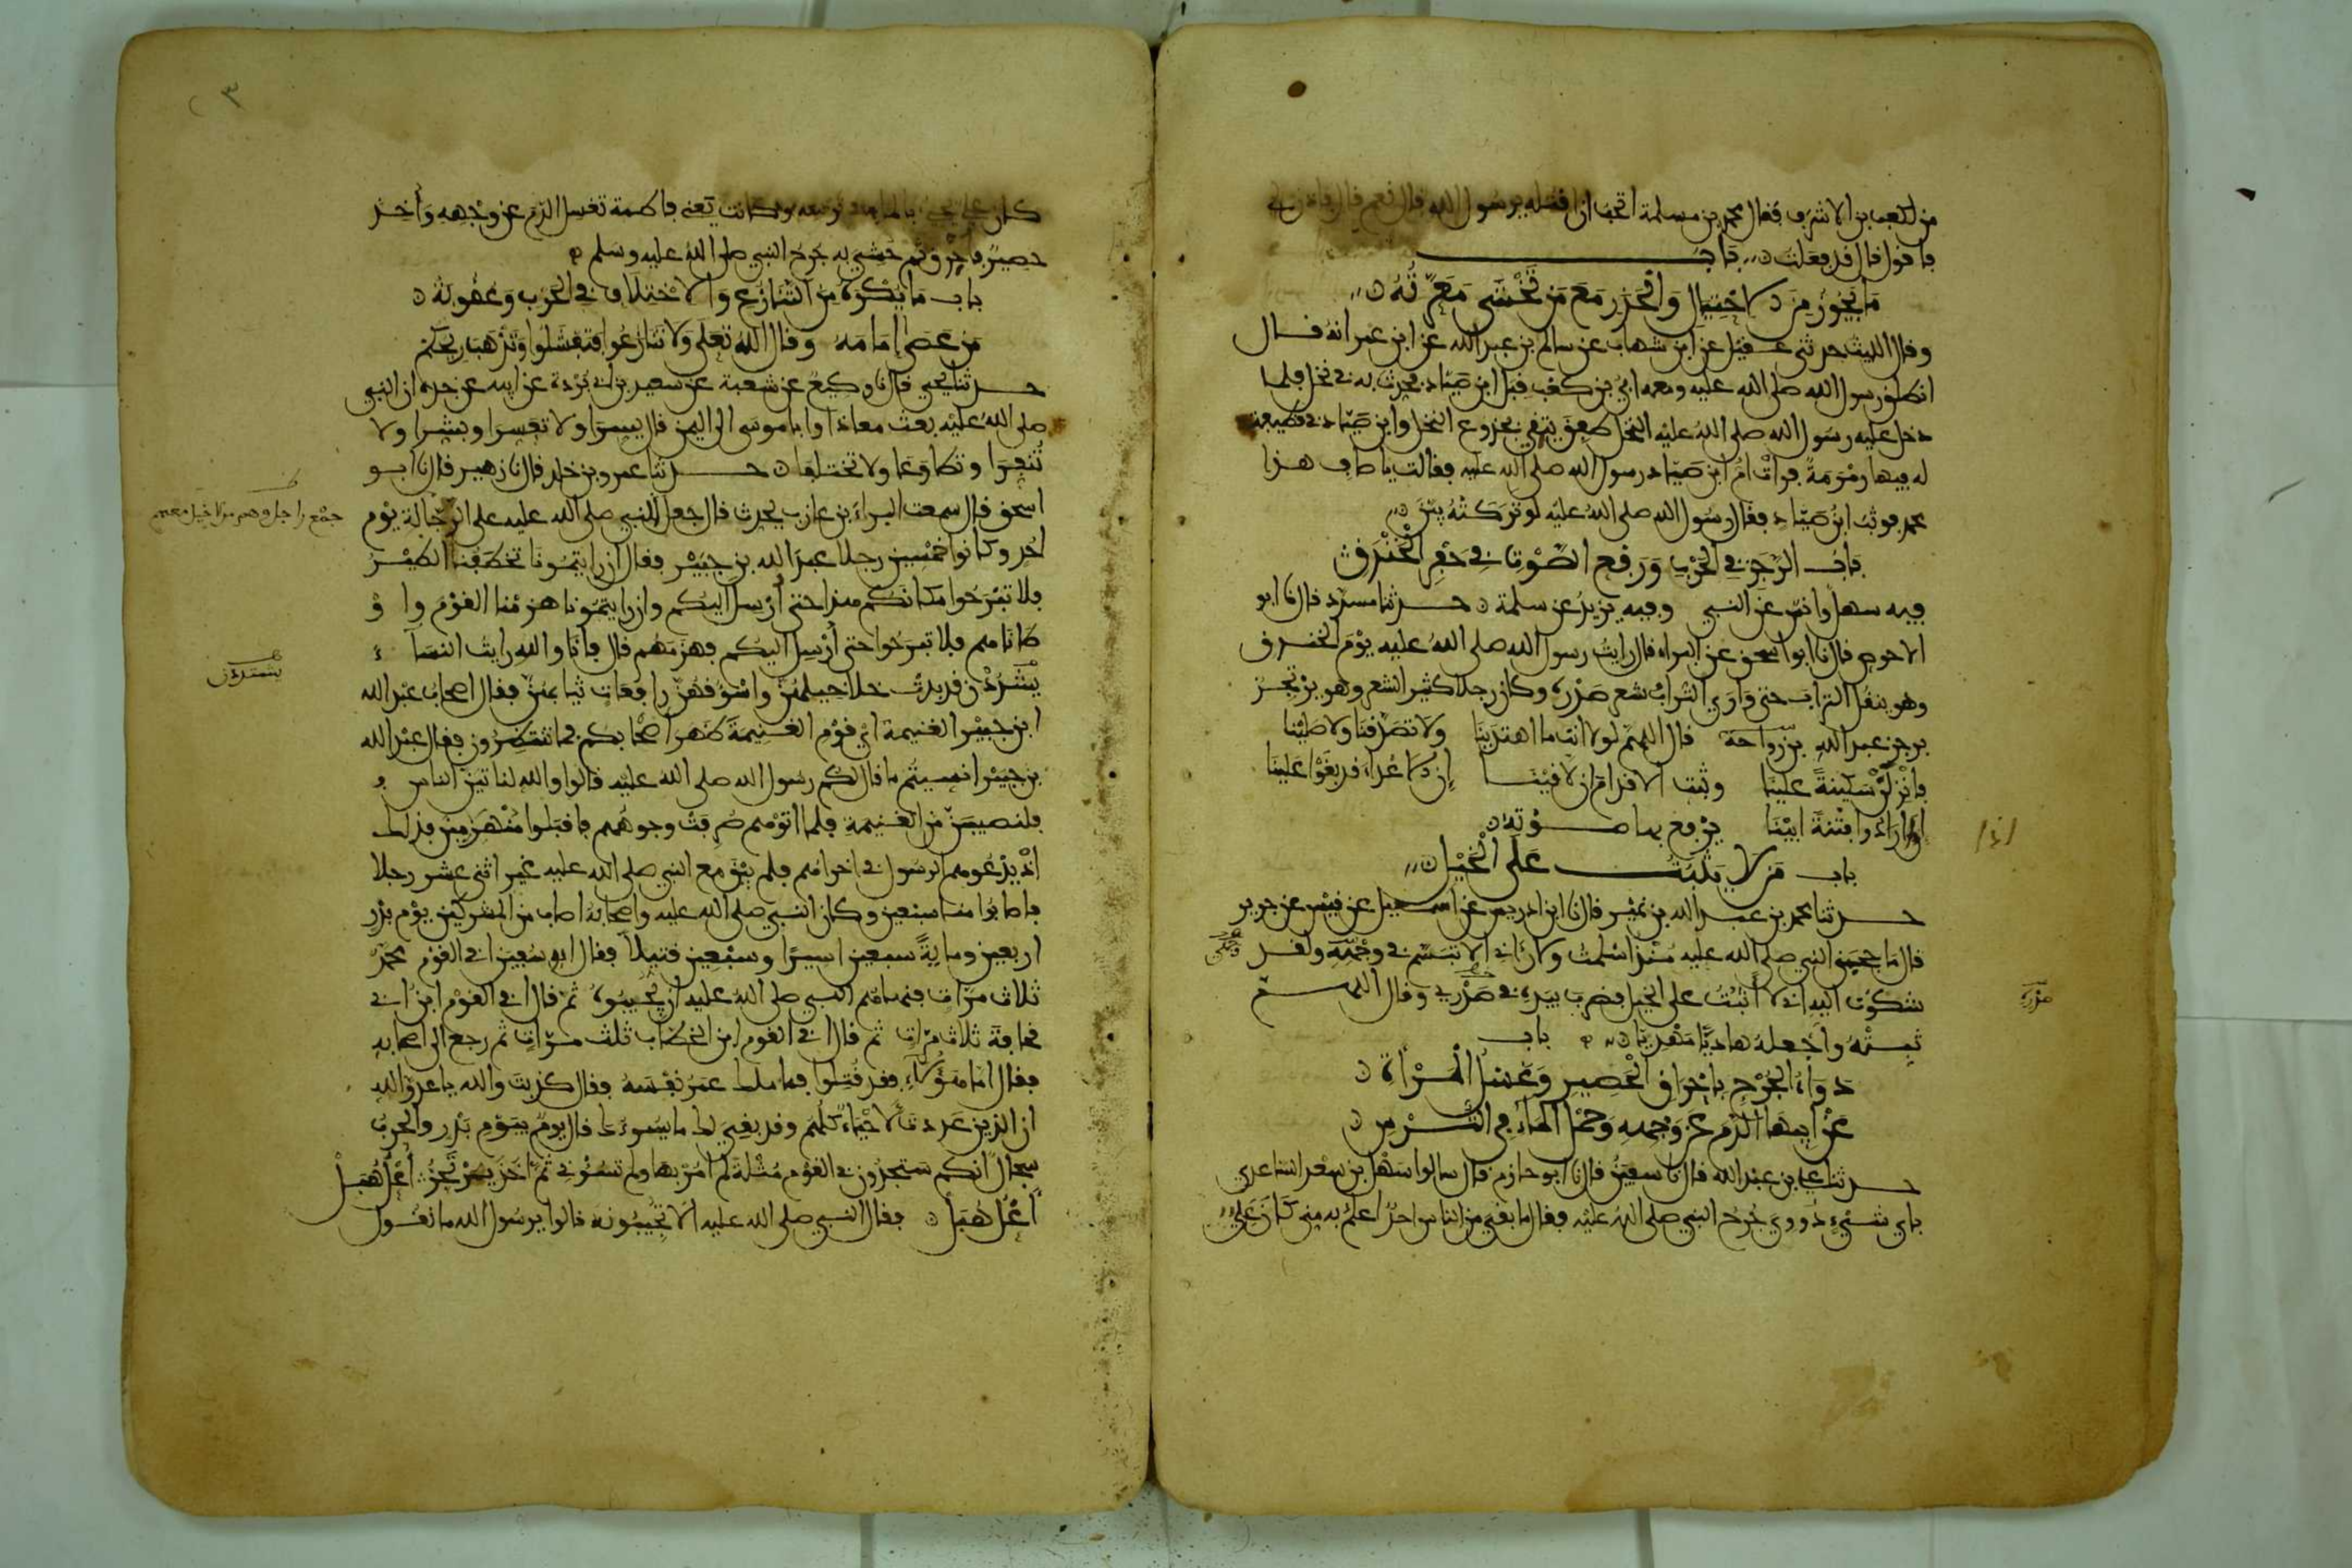 من لكعب بن الاشرف فقال محمد بن مسلمة اتحب ان اقتله يرسول الله قال نعم قال فاذن لي
فاقول قال قد فعلت باب
ما يجوز من الاحتيال والحذر مع من تخشى معرته
وقال الليث حدثني عقيل عن ابن شهاب عن سالم بن عبد الله عن ابن عمر انه قال
انطلق رسول الله صلى الله عليه ومعه ابي بن كعب قبل ابن صياد فحدث به في نخل فلما
دخل عليه رسول الله صلى الله عليه النخل طفق يتقي بجذوع النخل وابن صياد في قطيفة
له فيها رمرمة فرات ام ابن صياد رسول الله صلى الله عليه فقالت يا صاف هذا
محمد فوثب ابن صياد فقال رسول الله صلى الله عليه لو تركته بين
باب الرجز في الحرب ورفع الصوت في حفر الخندق
فيه سهل وانس عن النبي وفيه يزيد عن سلمة حدثنا مسدد قال نا ابو
الاحوص قال نا ابو اسحق عن البراء قال رايت رسول الله صلى الله عليه يوم الخندق
وهو ينقل التراب حتى وارى التراب شعر صدره وكان رجلا كثير الشعر وهو يرتجز
برجز عبد الله بن رواحة قال اللهم لولا انت ما اهتدينا ولا تصدقنا ولا صلينا
فانزلن سكينة علينا وثبت الاقدام ان لاقينا ان الاعداء قد بغوا علينا
اذا ارادوا فتنة ابينا يرفع بها صوته
اذا
باب من لا يثبت على الخيل
حدثنا محمد بن عبد الله بن نمير قال نا ابن ادريس عن اسمعيل عن قيس عن جرير
قال ما حجبني النبي صلى الله عليه منذ اسلمت ولا راني الا تبسم في وجهه ولقد
وجهي
شكوت اليه اني لا اثبت على الخيل فضرب بيده في صدري وقال اللهم
صدره
ثبته واجعله هاديا مهديا باب
دواء الجرح باحراق الحصير وغسل المراة
عن ابيها الدم عن وجهه وحمل الماء في الترس
حدثنا علي بن عبد الله قال نا سفين قال نا ابو حازم قال سالوا سهل بن سعد الساعدي
باي شيء دووي جرح النبي صلى الله عليه فقال ما بقي من الناس احد اعلم به مني كان علي
٣
كان علي يجيء بالماء في ترسه وكانت يعني فاطمة تغسل الدم عن وجهه واخذ
حصير فاحرق ثم حشي به جرح النبي صلى الله عليه وسلم
باب ما يكره من التنازع والاختلاف في الحرب وعقوبة
من عصى امامه وقال الله تعلى ولا تنازعوا فتفشلوا وتذهب ريحكم
حدثنا يحيى قال نا وكيع عن شعبة عن سعيد بن ابي بردة عن ابيه عن جده ان النبي
صلى الله عليه بعث معاذا وابا موسى الى اليمن قال يسرا ولا تعسرا وبشرا ولا
تنفرا وتطاوعا ولا تختلفا حدثنا عمرو بن خالد قال نا زهير قال نا ابو
اسحق قال سمعت البراء بن عازب يحدث قال جعل النبي صلى الله عليه على الرجالة يوم
جمع راجل وهم من لا خيل معهم
احد وكانوا خمسين رجلا عبد الله بن جبير فقال ان رايتمونا تخطفنا الطير
فلا تبرحوا مكانكم هذا حتى ارسل اليكم وان رايتمونا هزمنا القوم واو
طاناهم فلا تبرحوا حتى ارسل اليكم فهزمهم قال فانا والله رايت النساء
يشددن قد بدت خلاخيلهن واسوقهن رافعات ثيابهن فقال اصحاب عبد الله
يشتددن
ابن جبير الغنيمة اي قوم الغنيمة ظهر اصحابكم فما تنتظرون فقال عبد الله
بن جبير انسيتم ما قال لكم رسول الله صلى الله عليه قالوا والله لناتين الناس
فلنصيبن من الغنيمة فلما اتوهم صرفت وجوههم فاقبلوا منهزمين فذلك
اذ يدعوهم الرسول في اخراهم فلم يبق مع النبي صلى الله عليه غير اثني عشر رجلا
فاصابوا منا سبعين وكان النبي صلى الله عليه واصحابه اصاب من المشركين يوم بدر
اربعين وماية سبعين اسيرا وسبعين قتيلا فقال ابو سفين افي القوم محمد
ثلاث مرات فنهاهم النبي صلى الله عليه ان يجيبوه ثم قال افي القوم ابن ابي
قحافة ثلاث مرات ثم قال افي القوم ابن الخطاب ثلث مرات ثم رجع الى اصحابه
فقال اما هؤلاء فقد قتلوا فما ملك عمر نفسه فقال كذبت والله يا عدو الله
ان الذين عددت لاحياء كلهم وقد بقي لك ما يسوءك قال يوم بيوم بدر والحرب
سجال انكم ستجدون في القوم مثلة لم امر بها ولم تسؤني ثم اخذ يرتجز اعل هبل
اعل هبل فقال النبي صلى الله عليه الا تجيبونه قالوا يرسول الله ما نقول